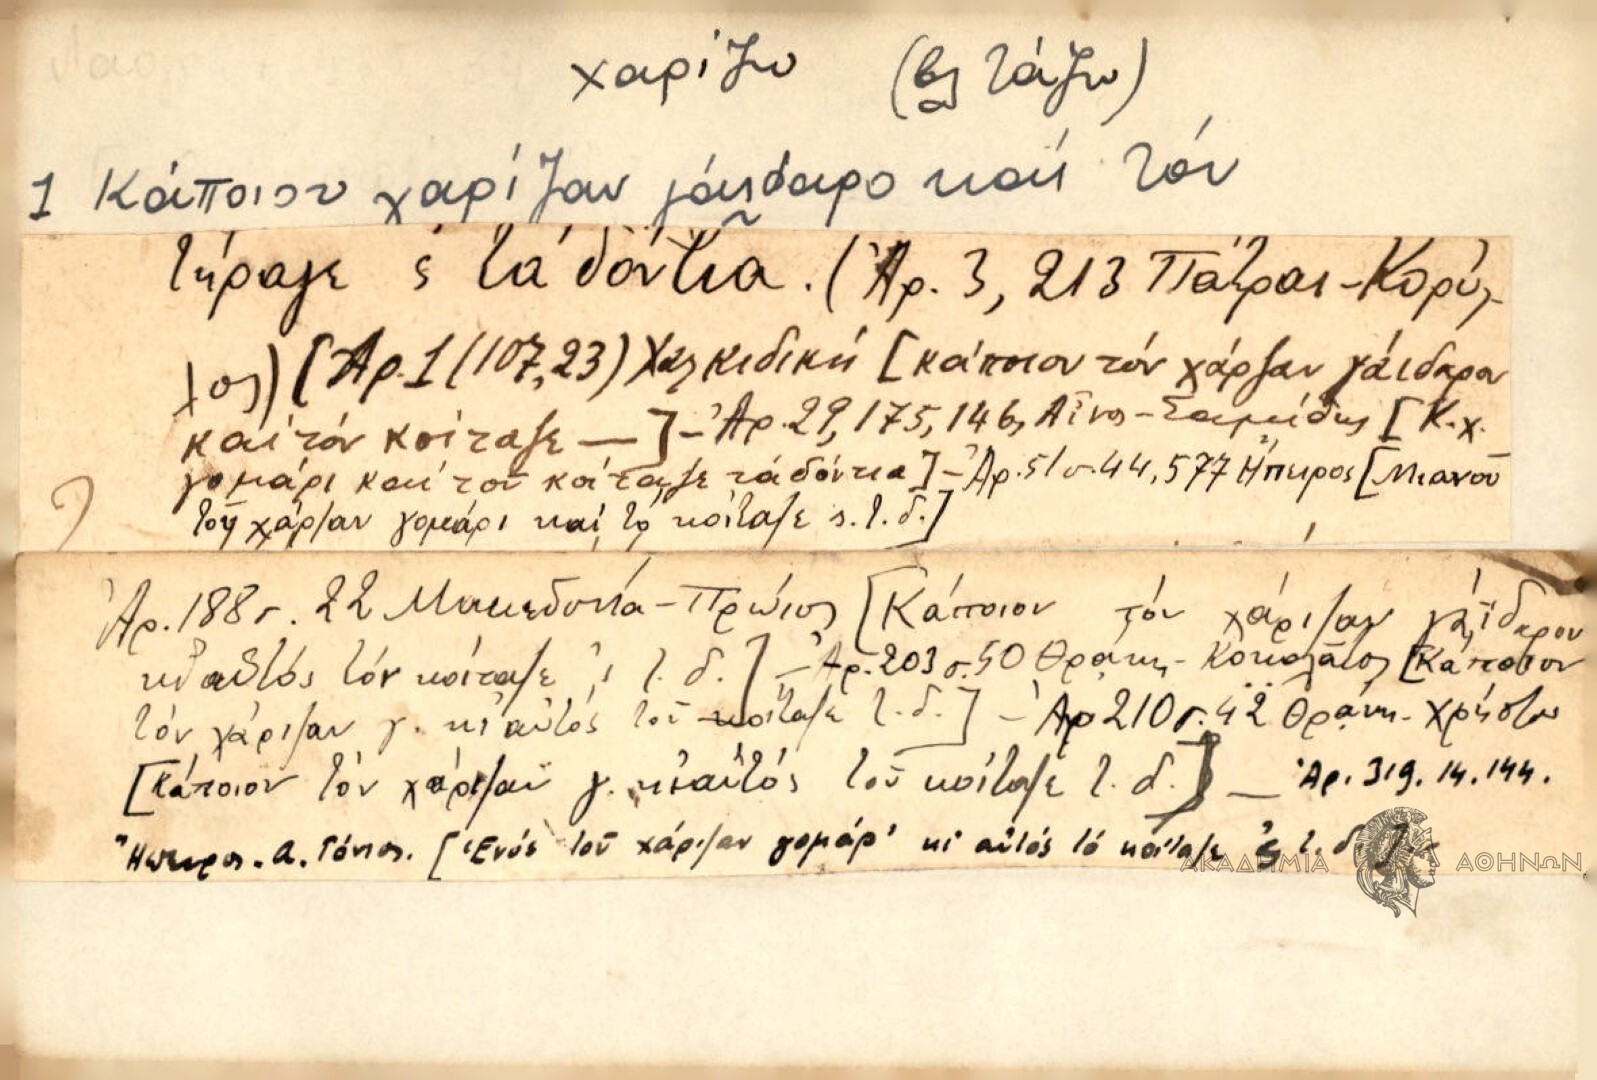 χαρίζω (βλ τάζω)
1 Κάποιον χαρίζαν γάιδαρο καί τόν
τήραγε ς τά δόντια. (Ἀρ. 3, 213 Πάτραι - Κορύλ-
λος) [Ἀρ. 1 (107,23) Χαλκιδική [κάποιον τόν χάρ'ζαν γάιδαρον
καί τόν κοίταζε — ] - Ἀρ. 29, 175, 146, Αἶνος - Σαμίδης [Κ. χ.
γομάρι καί τοῦ κοίταζε τά δόντια] - Ἀρ. 51 σ. 44, 577 Ἤπειρος [Μιανοῦ
τοῦ χάρ'ζαν γομάρι καί τό κοίταζε ς. τ. δ.]
Ἀρ. 188 σ. 22 Μακεδονία - Πρώιος [Κάποιον τόν χάριζαν γάϊδαρον
κι αὐτός τόν κοίταζε 'ς τ. δ.] - Ἀρ. 203 σ. 50 Θράκη - [Κάποιον
τόν χάριζαν γ. κι αὐτός τοῦ κοίταζε τ. δ.] - Ἀρ 210 σ. 42 Θράκη - Χρήστου
[Κάποιον τόν χάριζαν γ. κι αὐτός τοῦ κοίταζε τ. δ.] — Ἀρ. 319. 14. 144.
Ἤπειρος. α. Τόνιος. [Ἑνός τοῦ χάριζαν γομάρ' κι αὐτός τό κοίταζε ς τ. δ.].-
ΑΚΑΔΗΜΙΑ ΑΘΗΝΩΝ